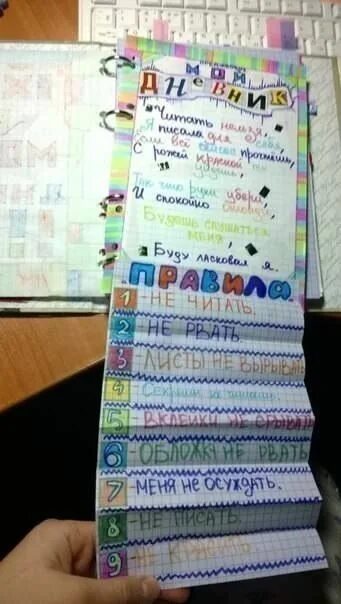 МОЙ
ДНЕВНИК
Читать нельзя,
Я писала для себя,
если всё прочтёшь,
С рожей красной
уйдёшь,
Так что руки убери,
И спокойно отойди,
Будешь слушаться
меня,
Буду ласковая я.
ПРАВИЛА
1 - НЕ ЧИТАТЬ.
2 - НЕ РВАТЬ.
3 - ЛИСТЫ НЕ ВЫРЫВАТЬ
4 -
5 - ВКЛЕЙКИ НЕ СРЫВАТЬ
6 - ОБЛОЖКУ НЕ РВАТЬ
7 - МЕНЯ НЕ ОСУЖДАТЬ.
8 - НЕ ПИСАТЬ.
9 - НЕ